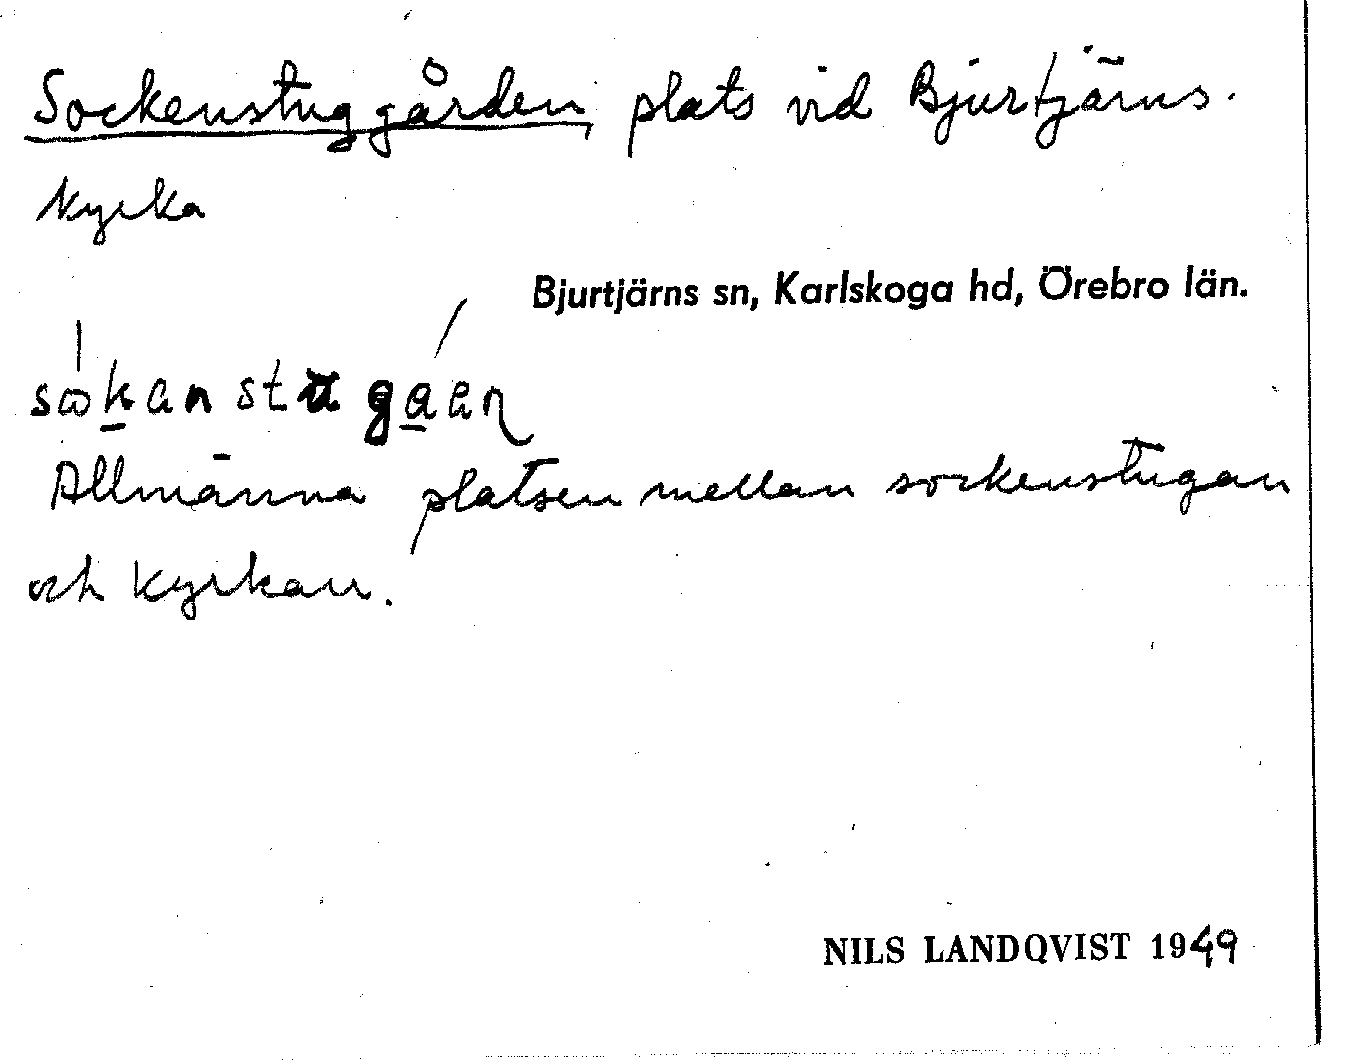 Sockenstuggården, plats vid Bjurtjärns.
kyrka
Bjurtjärns sn, Karlskoga hd, Örebro län.
Allmänna platsen mellan sockenstugan
och kyrkan.
NILS LANDQVIST 1949